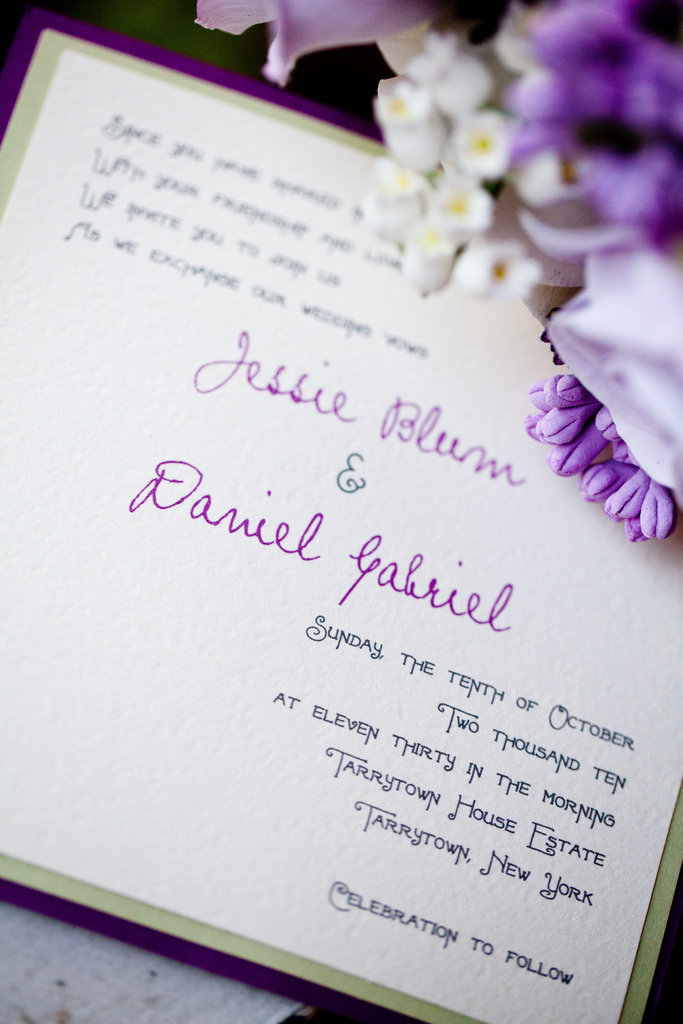 Since you have
With your friendship and love
We invite you to join us
As we exchange our wedding vows
Jessie Blum
&
Daniel Gabriel
Sunday, the tenth of October
Two thousand ten
at eleven thirty in the morning
Tarrytown House Estate
Tarrytown, New York
Celebration to follow